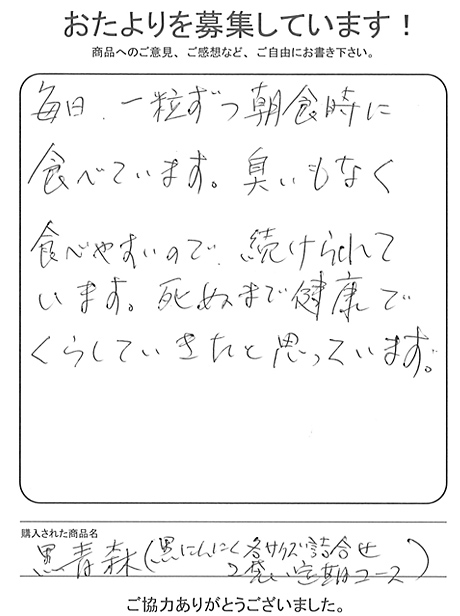 おたよりを募集しています！
商品へのご意見、ご感想など、ご自由にお書き下さい。
毎日、一粒ずつ朝食時に
食べています。臭いもなく
食べやすいので、続けられて
います。死ぬまで健康で
くらしていきたと思っています。
購入された商品名
黒青森(黒にんにく各サイズ詰合せ
定期コース)
ご協力ありがとうございました。